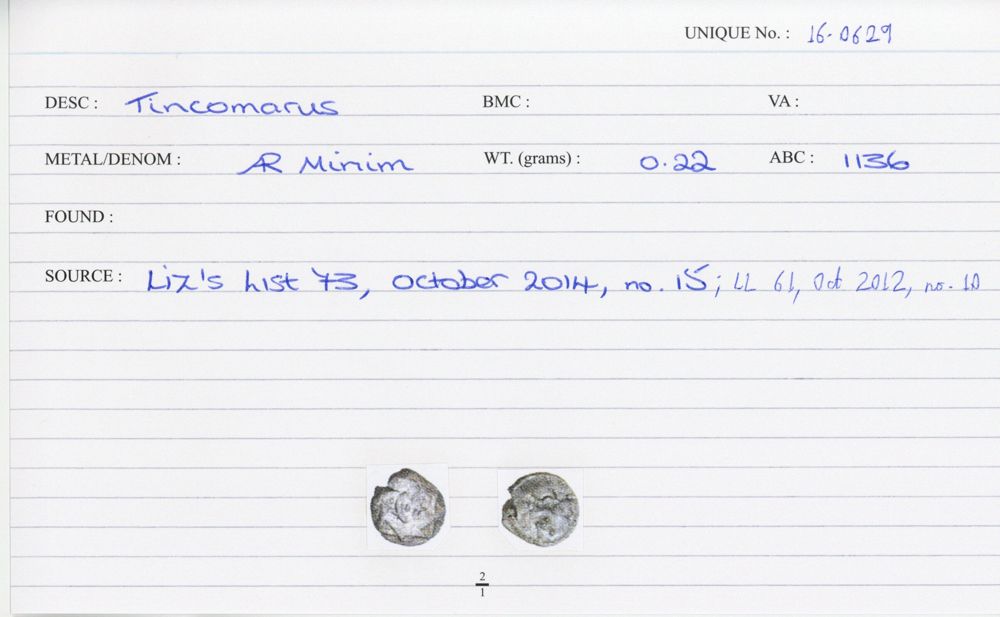 UNIQUE No. : 16-0629
DESC : Tincomarus BMC : VA :
METAL/DENOM : AR Minim WT. (grams) : 0.22 ABC : 1136
FOUND :
SOURCE : Liz's List 73, October 2014, no. 15; LL 61, Oct 2012, no. 10
2
1